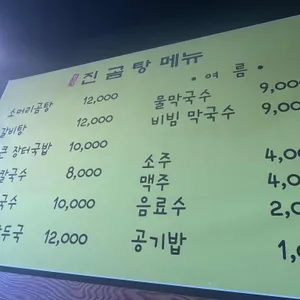 진 곰탕 메뉴
소머리곰탕 12,000
갈비탕 12,000
큰 장터국밥 10,000
칼국수 8,000
국수 10,000
만두국 12,000
•여 름•
물막국수 9,00
비빔 막국수 9,00
소주 4,0
맥주 4,0
음료수 2,0
공기밥 1,